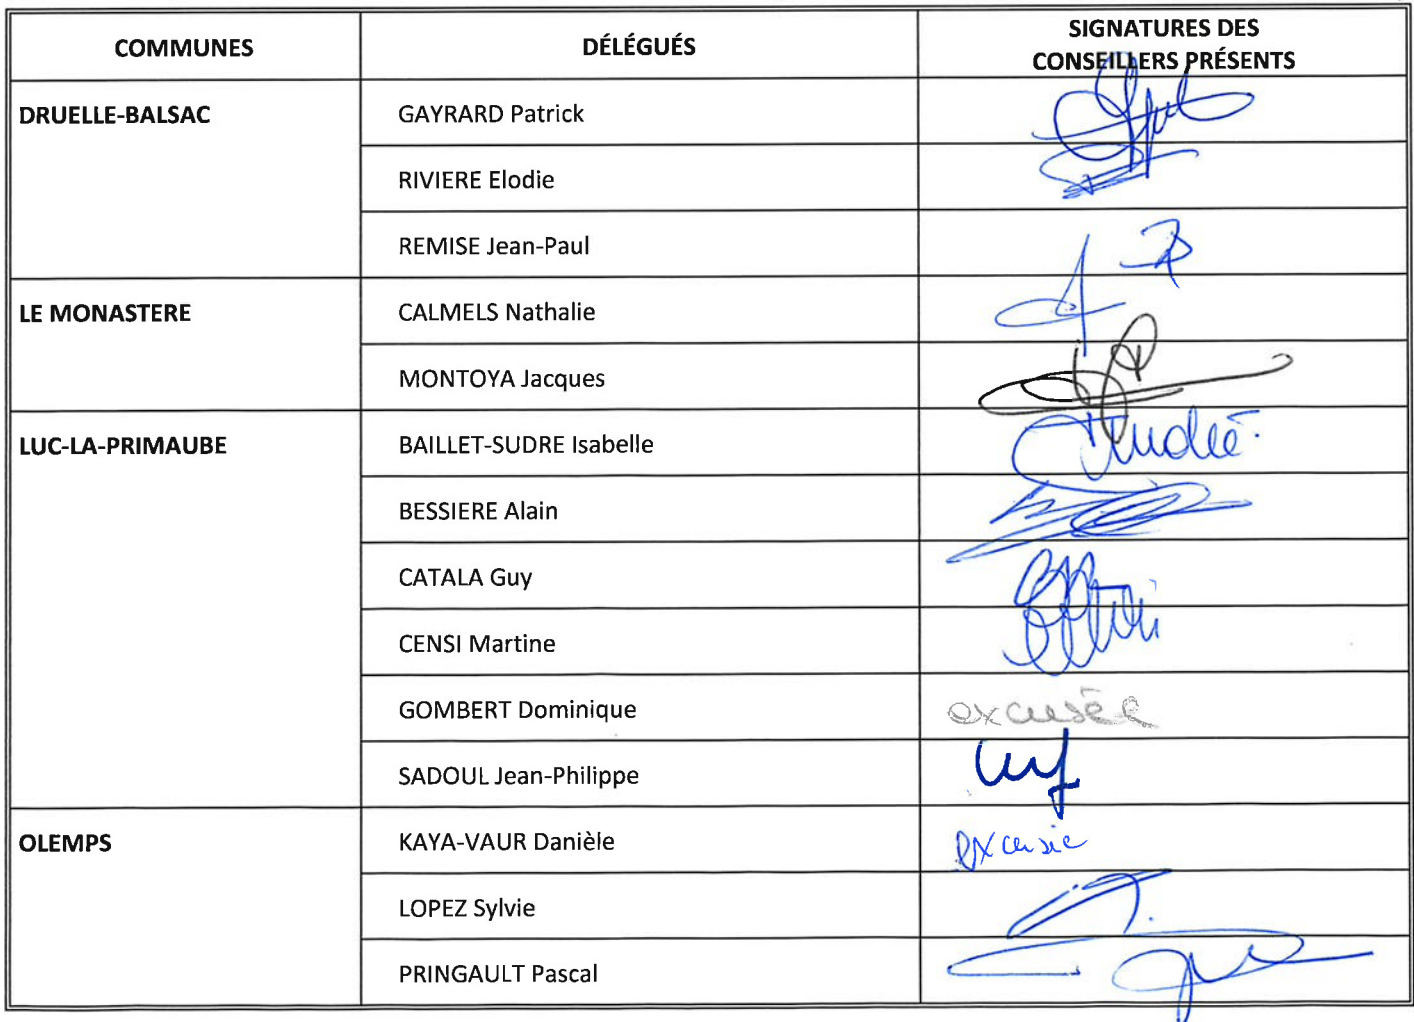 COMMUNES DÉLÉGUÉS SIGNATURES DES
CONSEILLERS PRÉSENTS
DRUELLE-BALSAC GAYRARD Patrick
RIVIERE Elodie
REMISE Jean-Paul
LE MONASTERE CALMELS Nathalie
MONTOYA Jacques
LUC-LA-PRIMAUBE BAILLET-SUDRE Isabelle
BESSIERE Alain
CATALA Guy
CENSI Martine
GOMBERT Dominique excusée
SADOUL Jean-Philippe
OLEMPS KAYA-VAUR Danièle excusée
LOPEZ Sylvie
PRINGAULT Pascal